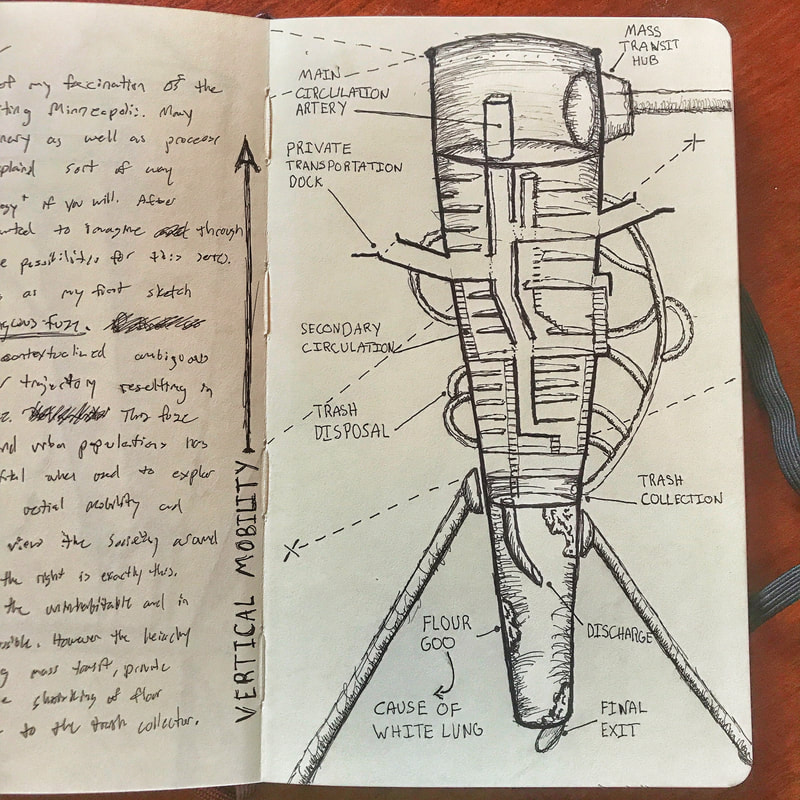 of my fascination of the
Minneapolis. Many
as well as processor
sort of way
if you will. After
to imagine through
possibilities for this
as my first sketch
fuze.
contextualized ambiguous
trajectory resulting in
This fuze
and urban populations has
when used to explor
mobility and
view the society around
the right is exactly this.
the uninhabitable and in
However the
mass transit, private
shrinking of flour
to the trash collector.
VERTICAL MOBILITY
MASS
TRANSIT
HUB
MAIN
CIRCULATION
ARTERY
PRIVATE
TRANSPORTATION
DOCK
SECONDARY
CIRCULATION
TRASH
DISPOSAL
TRASH
COLLECTION
FLOUR
GOO
DISCHARGE
CAUSE OF
WHITE LUNG
FINAL
EXIT